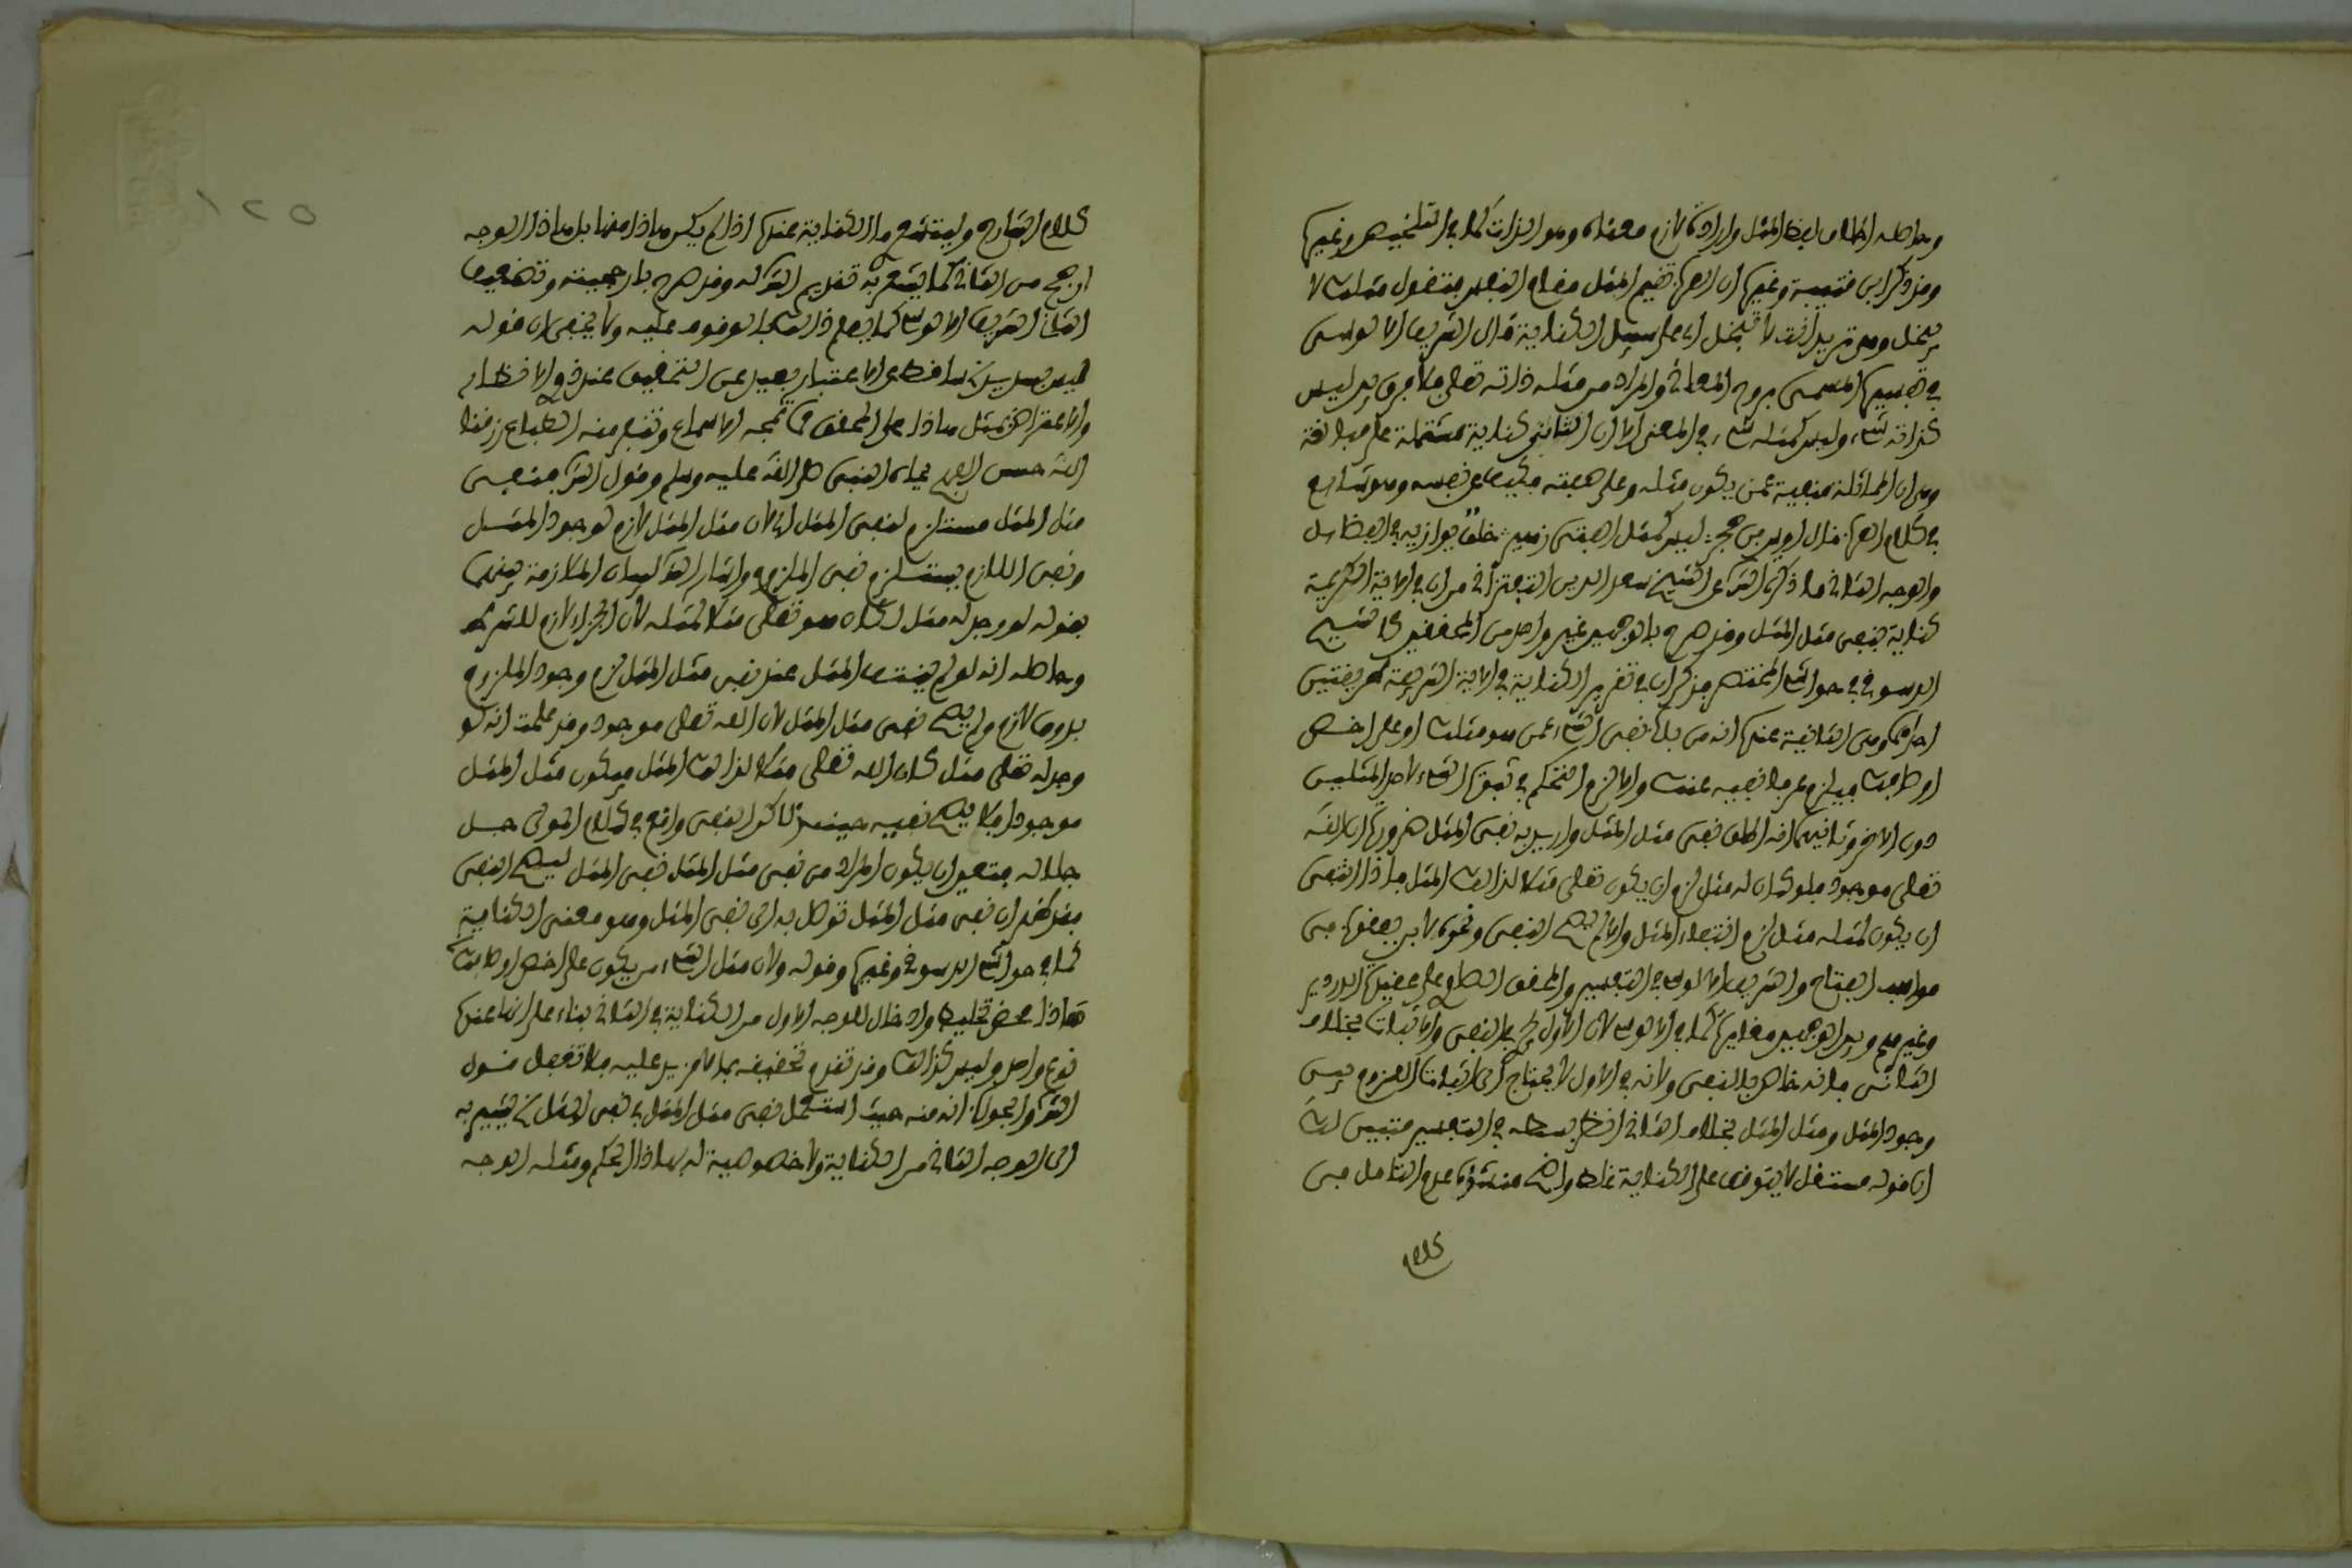 وحاصله اطلاق لفظ المثل وارادة لازم معناه وهو الذات كما في التلخيص وغيره
وقد ذكر ابن قتيبة وغيره ان العرب تقيم المثل مقام النفس فتقول مثلك لا
يبخل وهي تريد انت لا تبخل اي على سبيل الكناية قال الشريف الالوسي
في تفسيره المسمى بروح المعاني والمراد من مثله ذاته تعالى فلا فرق بين ليس
كذاته شيء وليس كمثله شيء في المعنى الا ان الثاني كناية مشتملة على مبالغة
وهي ان المماثلة منفية عمن يكون مثله وعلى صفته فكيف عن نفسه وهو شايع
في كلام العرب قال اوس بن حجر ليس كمثل الفتى زهير خلق يوازيه في الفضايل
والوجه الثاني ما ذكره الشر عن الشيخ سعد الدين التفتزاني من ان في الاية الكريمة
كناية بنفي مثل المثل وقد صرح بالوجهين غير واحد من المحققين كالشيخ
الدسوقي في حواشي المختصر فذكر ان في تقرير الكناية في الاية الشريفة طريقتين
احداهما وهي الشايعة عندهم انه من باب نفي الشيء عمن هو مثلك او على اخص
اوصافك فيلزم نفيه عنك والا لزم التحكم في ثبوت الشيء لاحد المثلين
دون الاخر وثانيهما انه اطلق نفي مثل المثل واريد به نفي المثل ضرورة ان الله
تعالى موجود فلو كان له مثل لزم ان يكون تعالى مثلا لذلك المثل فاذا انتفى
ان يكون لمثله مثل لزم انتفاء المثل والا لم يصح النفي ونحوه لابن يعقوب في
مواهب الفتاح والشريف الالوسي في التفسير والمحقق الصاوي على عقيدة الدردير
وغيرهم وبين الوجهين مغايرة كما في الالوسي لان الاول في النفي والاثبات بخلاف
الثاني فانه خاص بالنفي ولانه في الاول لا يحتاج الى اثبات اللزوم بين
وجود المثل ومثل المثل بخلاف الثاني انظر بسطه في التفسير فتبين لك
ان قوله مستقل لا يتوقف على الكناية غلط واضح منشؤه عدم التامل في
كلام
١٢٥
كلام الشارح وليتني ما الكناية عنده اذا لم يكن هاذا منها بل هاذا الوجه
ارجح من الثاني كما يشعر به تقديم الشر له وقد صرح بارجحيته وتضعيف
الثاني الشريف الالوسي كما يعلم ذلك بالوقوف عليه ولا يخفى ان قوله
ليس بسديد ساقط عن الاعتبار بعيد عن التحقيق عند ذوي الانظار
والاعتراض بمثل هاذا على المحقق مما تمجه الاسماع وتنفر منه الطباع رزقنا
الله حسن الادب بجاه النبي صلى الله عليه وسلم وقول الشر فنفي
مثل المثل مستلزم لنفي المثل اي لان مثل المثل لازم لوجود المثل
ونفي اللازم يستلزم نفي الملزوم واشار الشر لبيان الملازمة بينهما
بقوله لو وجد له مثل لكان هو تعالى مثلا لمثله لان الجزاء لازم للشرط
وحاصله انه لو لم ينتف المثل عند نفي مثل المثل لزم وجود الملزوم
بدون لازم ولم يصح نفي مثل المثل لان الله تعالى موجود وقد علمت انه لو
وجد له تعالى مثل كان الله تعالى مثلا لذلك المثل فيكون مثل المثل
موجودا فلا يصح نفيه حينئذ لاكن النفي واقع في كلام المولى جل
جلاله فتعين ان يكون المراد من نفي مثل المثل نفي المثل ليصح النفي
فقد ظهر ان نفي مثل المثل توصل به الى نفي المثل وهو معنى الكناية
كما في حواشي الدسوقي وغيره وقوله ولان مثل الشيء من يكون على اخص اوصافه
هاذا محض تخليط وادخال للوجه الاول من الكناية في الثاني بناء على انها عنده
نوع واحد وليس كذلك وقد تقدم تحقيقه بما لا مزيد عليه فلا تغفل قول
الشر والجواب انه منه حيث استعمل نفي مثل المثل في نفي المثل يشير به
الى الوجه الثاني من الكناية ولا خصوصية له بهاذا الحكم ومثله الوجه